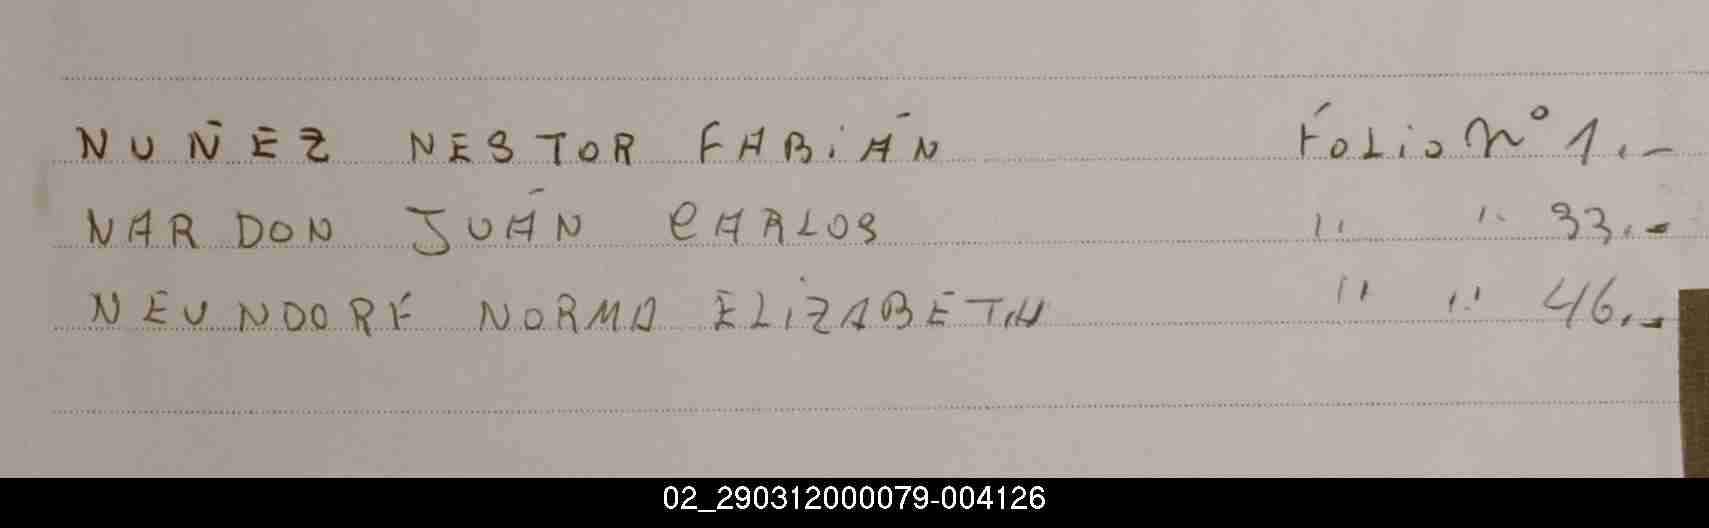 NUÑEZ NESTOR FABiÁN FoLio Nº 1.-
NARDON JUÁN CARLOS " " 33.-
NEUNDORF NORMA ELiZABETH " " 46.-
02_290312000079-004126